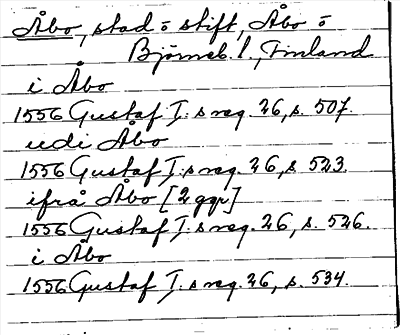 Åbo, stad o stift, Åbo o
Björneb. l., Finland
i Åbo
1556 Gustaf I:s reg. 26, s. 507.
udi Åbo
1556 Gustaf I:s reg. 26, s. 523.
ifrå Åbo [2 ggr]
1556 Gustaf I:s reg. 26, s. 526.
i Åbo
1556 Gustaf I:s reg. 26, s. 534.